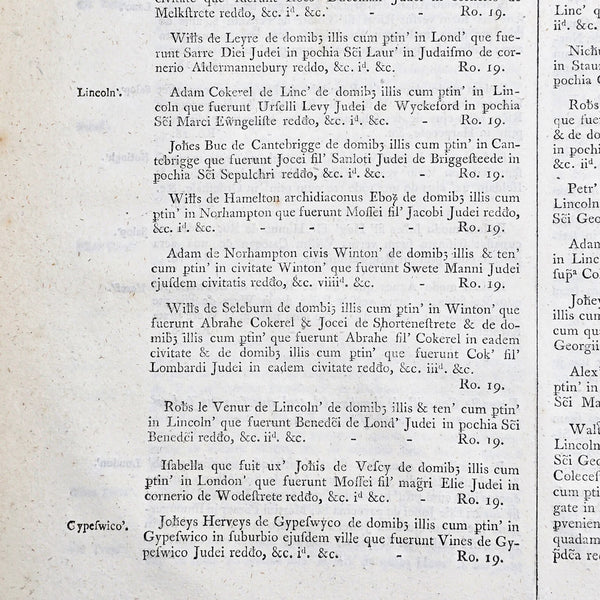 Melkſtrete reddo, &c. iᵈ. &c. - - Ro. 19.
Wiłłs de Leyre de domibȝ illis cum ptin' in Lond' que fue-
runt Sarre Diei Judei in pochia Sc̃i Laur' in Judaiſmo de cor-
nerio Aldermannebury reddo, &c. iᵈ. &c. Ro. 19.
Lincoln'. Adam Cokerel de Linc' de domibȝ illis cum ptin' in Lin-
coln que fuerunt Urſelli Levy Judei de Wyckeford in pochia
Sc̃i Marci Ewn̄geliſte reddo, &c. iᵈ. &c. - Ro. 19.
Joħes Buc de Cantebrigge de domibȝ illis cum ptin' in Can-
tebrigge que fuerunt Jocei fil' Sanloti Judei de Briggeſteede in
pochia Sc̃i Sepulchri reddo, &c. iᵈ. &c. - Ro. 19.
Wiłłs de Hamelton archidiaconus Eboꝝ de domibȝ illis cum
ptin' in Norhampton que fuerunt Moſſei fil' Jacobi Judei reddo,
&c. iᵈ. &c. - - - - Ro. 19.
Adam de Norhampton civis Winton' de domibȝ illis & ten'
cum ptin' in civitate Winton' que fuerunt Swete Manni Judei
ejuſdem civitatis reddo, &c. viiiiᵈ. &c. - Ro. 19.
Wiłłs de Seleburn de domibȝ illis cum ptin' in Winton' que
fuerunt Abrahe Cokerel & Jocei de Shorteneſtrete & de do-
mibȝ illis cum ptin' que fuerunt Abrahe fil' Cokerel in eadem
civitate & de domibȝ illis cum ptin' que fuerunt Cok' fil'
Lombardi Judei in eadem civitate reddo, &c. iiiᵈ. &c.
Ro. 19.
Robs le Venur de Lincoln' de domibȝ illis & ten' cum ptin'
in Lincoln' que fuerunt Benedc̃i de Lond' Judei in pochia Sc̃i
Benedc̃i reddo, &c. iiᵈ. &c. - - Ro. 19.
Iſabella que fuit ux' Joħis de Veſcy de domibȝ illis cum
ptin' in London' que fuerunt Moſſei fil' mag̃ri Elie Judei in
cornerio de Wodeſtrete reddo, &c. iᵈ &c. - Ro. 19.
Gypeſwico'. Joħeys Herveys de Gypeſwyco de domibȝ illis cum ptin' in
Gypeſwico in ſuburbio ejuſdem ville que fuerunt Vines de Gy-
peſwico Judei reddo, &c. iᵈ. &c. - Ro. 19.
Linc' q
iiᵈ. &c.
Nichu
in Staun
pochia
Robs
que fue
& de do
in poch
&c. iiᵈ.
Petr'
Lincoln
Sc̃i Geo
Adam
in Linc
ſupᵃ Col
Joħey
illis cum
cum qu
Georgii
Alex'
ptin' in
Sc̃i Ma
Lincoln
Sc̃i Geo
Coleceſ
cum pti
gate in
pvenien
quadam